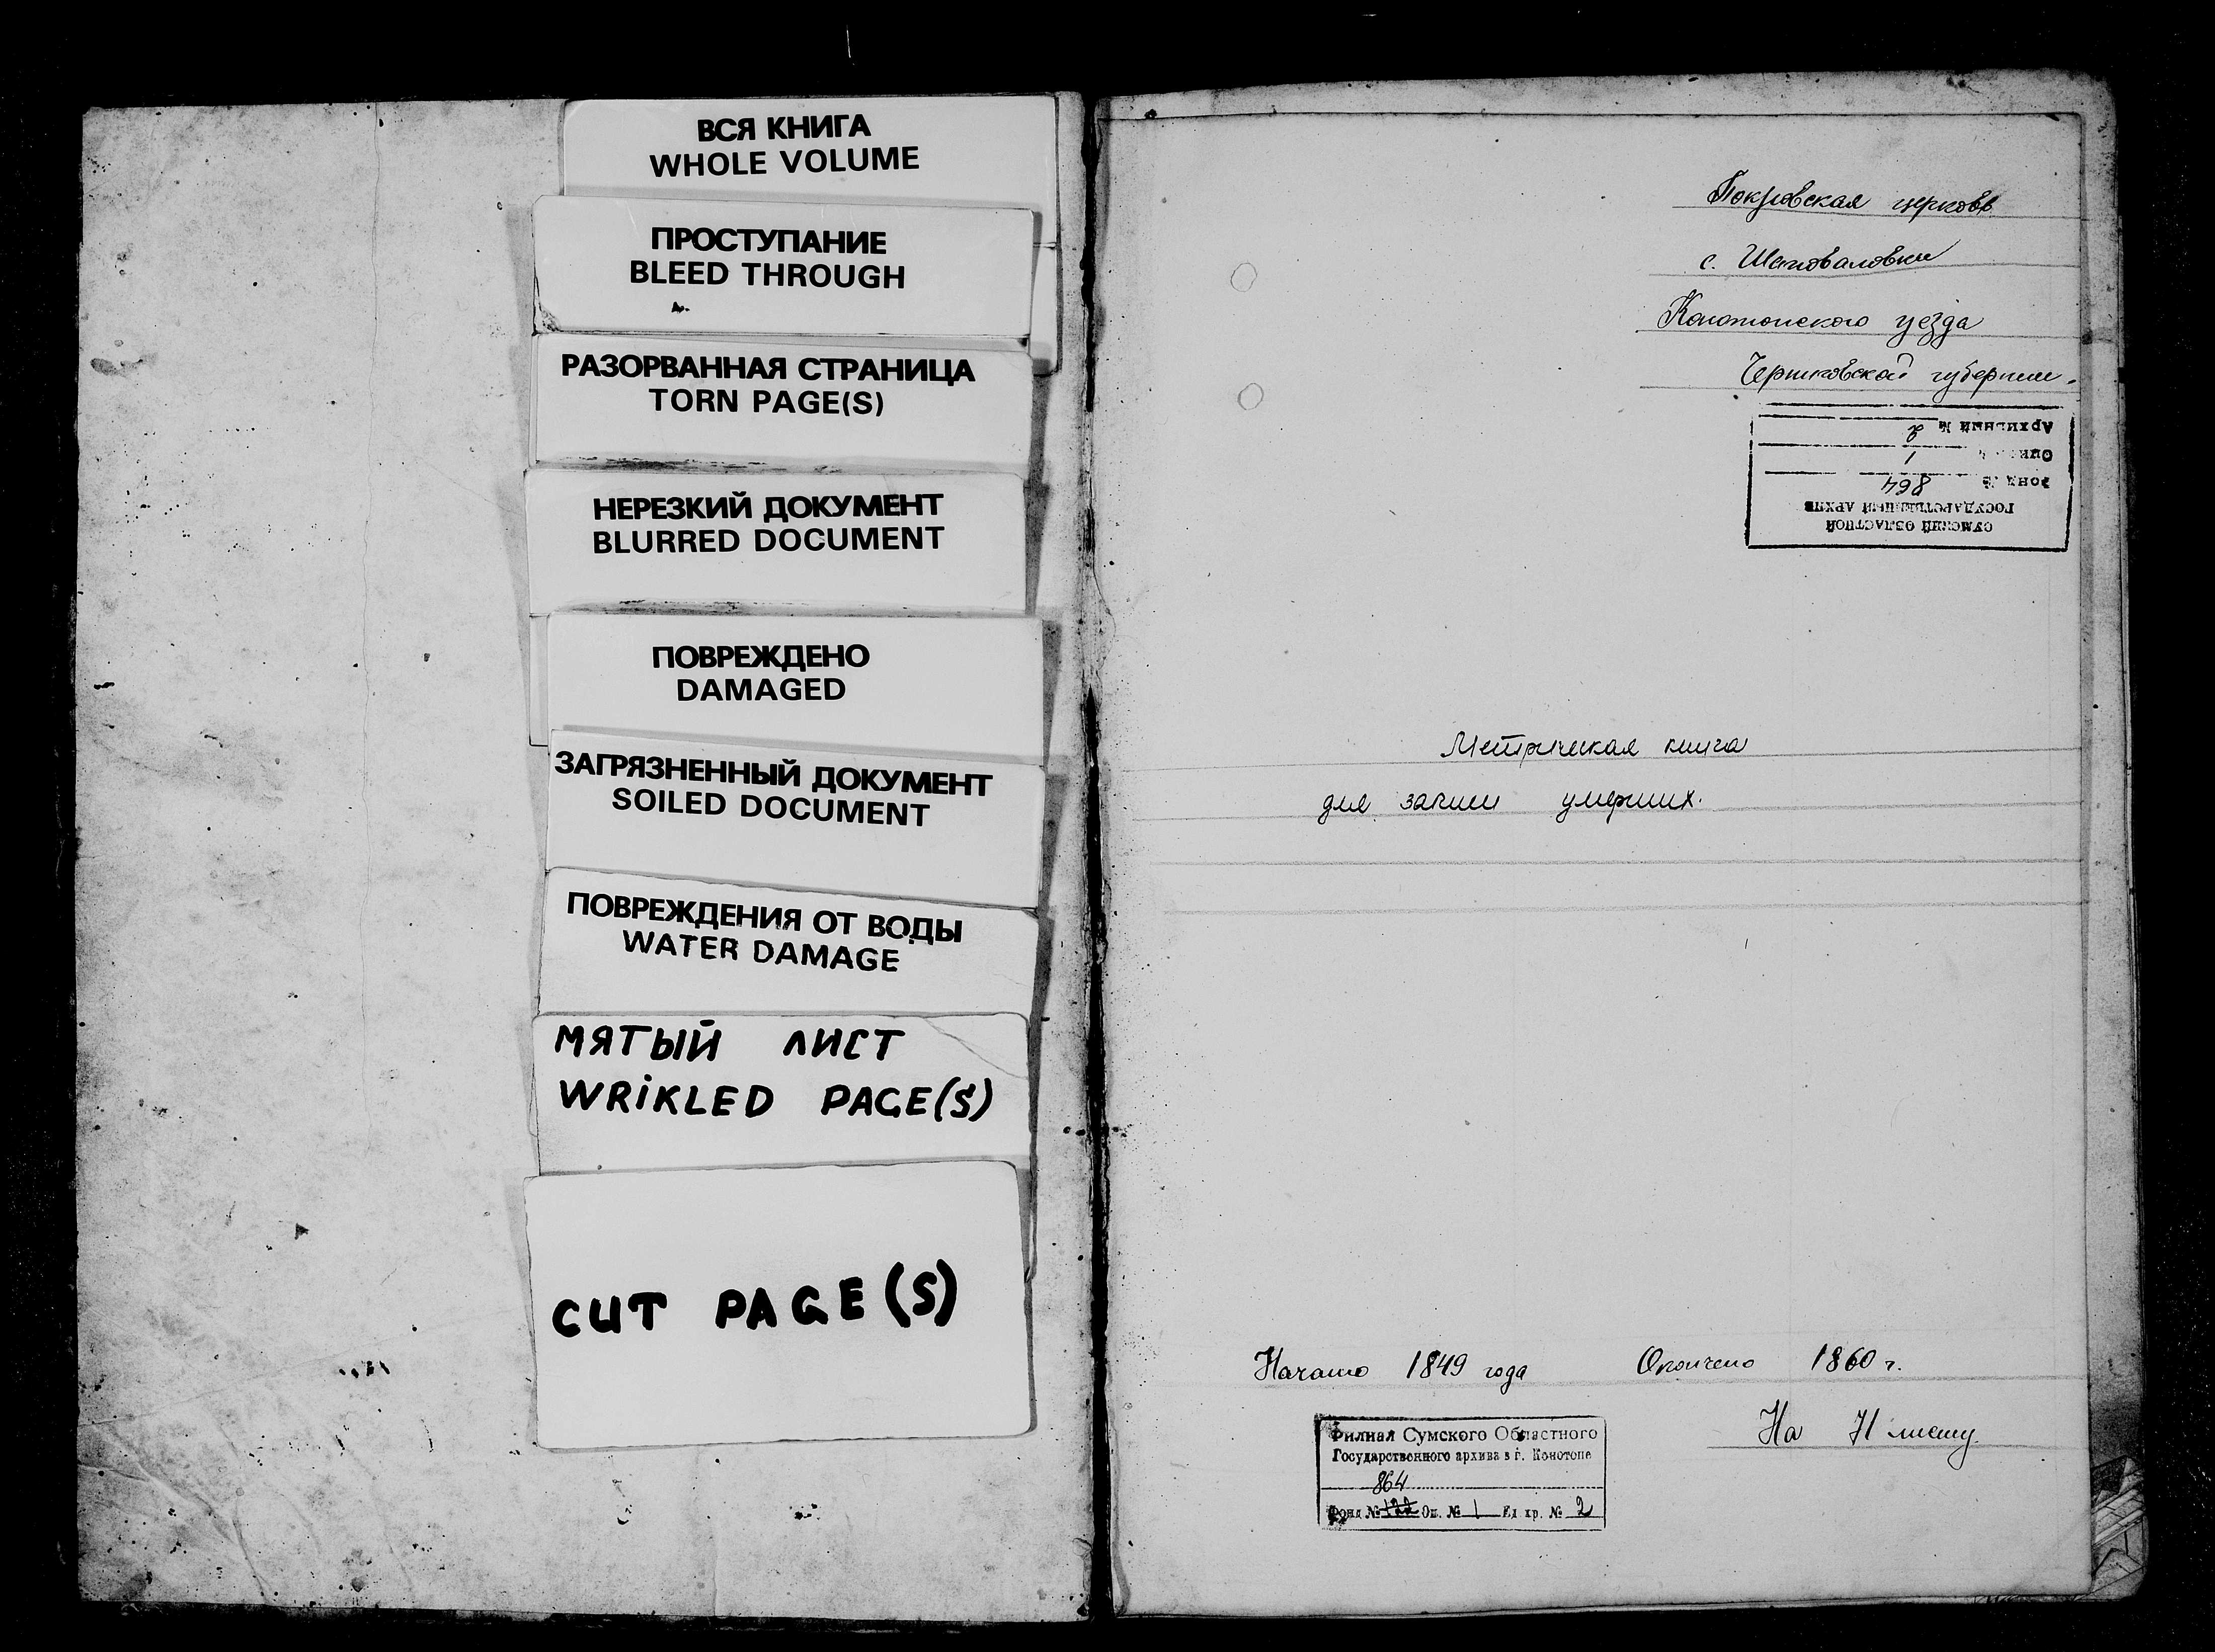 ВСЯ КНИГА
WHOLE VOLUME
ПРОСТУПАНИЕ
BLEED THROUGH
РАЗОРВАННАЯ СТРАНИЦА
TORN PAGE(S)
НЕРЕЗКИЙ ДОКУМЕНТ
BLURRED DOCUMENT
ПОВРЕЖДЕНО
DAMAGED
ЗАГРЯЗНЕННЫЙ ДОКУМЕНТ
SOILED DOCUMENT
ПОВРЕЖДЕНИЯ ОТ ВОДЫ
WATER DAMAGE
МЯТЫЙ ЛИСТ
WRIKLED PAGE(S)
CUT PAGE(S)
Покровская церковь
с. Шаповаловки
Конотопского уезда
Черниговской губернии.
СУМСКИЙ ОБЛАСТНОЙ
ГОСУДАРСТВЕННЫЙ АРХИВ
Фонд № 864
Опись № 1
Архивный № 2
Метрическая книга
для записи умерших.
Начато 1849 года Окончено 1860 г.
На листу
Филиал Сумского Областного
Государственного архива в г. Конотопе
864
Фонд № 122 Оп. № 1 Ед. хр. № 2